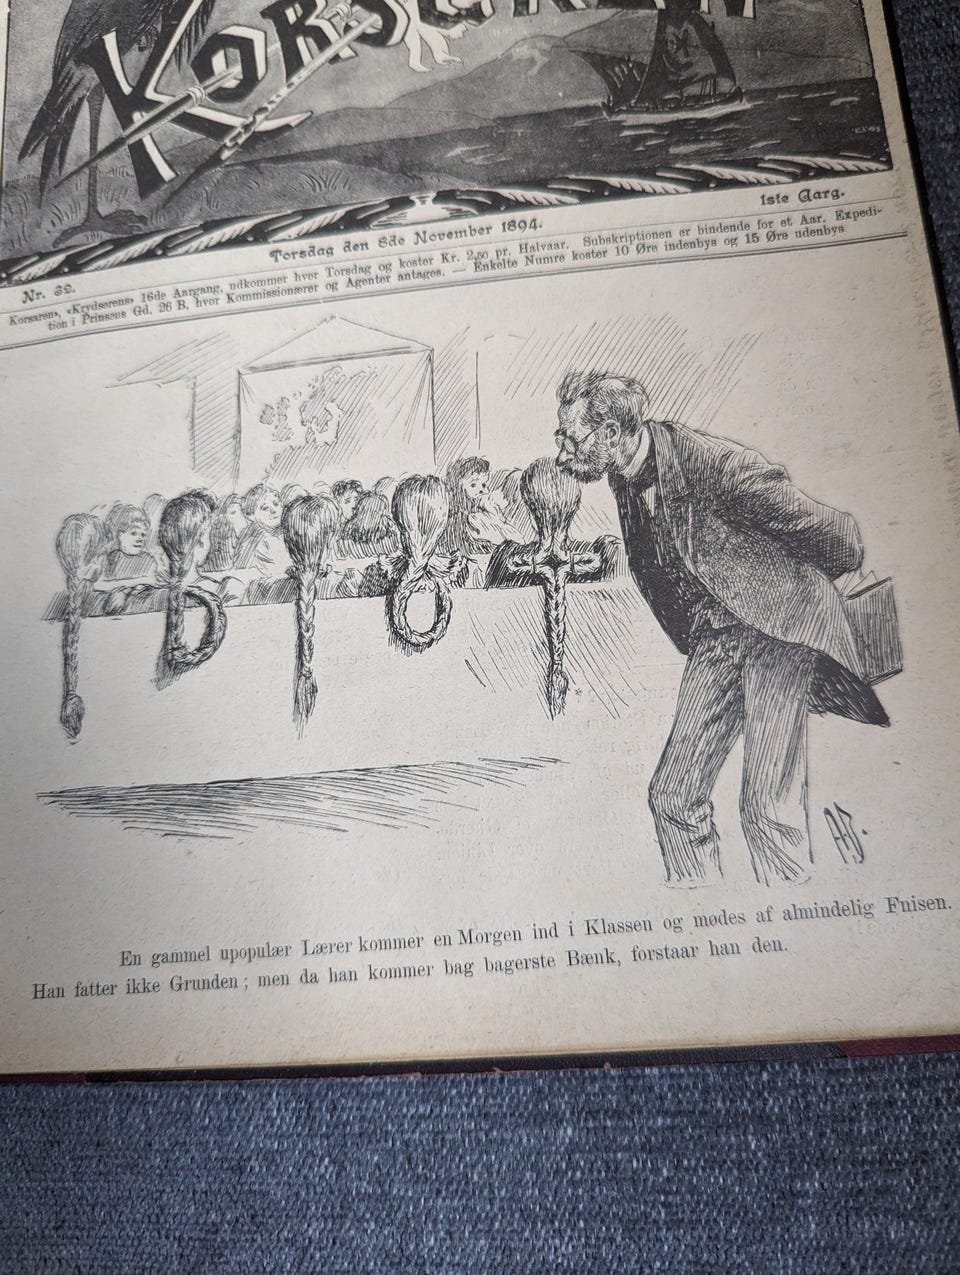 KORSAREN
Torsdag den 8de November 1894.
Nr. 32.
1ste Aarg.
Korsaren», «Krydserens» 16de Aargang, udkommer hver Torsdag og koster Kr. 2,50 pr. Halvaar. Subskriptionen er bindende for et Aar. Expedi-
tion i Prinsens Gd. 26 B, hvor Kommissionærer og Agenter antages. — Enkelte Numre koster 10 Øre indenbys og 15 Øre udenbys
IDIOT
AJ.
En gammel upopulær Lærer kommer en Morgen ind i Klassen og mødes af almindelig Fnisen.
Han fatter ikke Grunden; men da han kommer bag bagerste Bænk, forstaar han den.